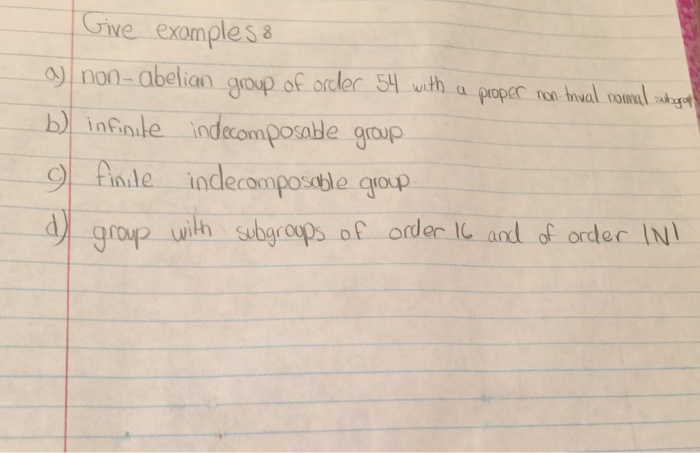 Give examples:
a) non-abelian group of order 54 with a proper non-trival normal subgroup
b) infinite indecomposable group
c) finite indecomposable group
d) group with subgroups of order 16 and of order |N|